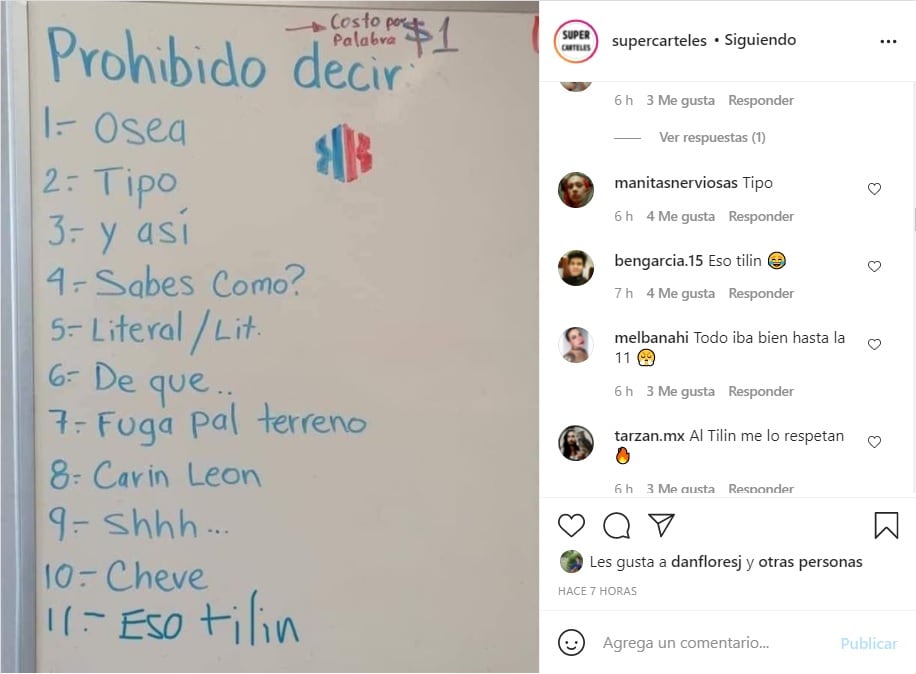 Costo por
Palabra $1
Prohibido decir:
1.- Osea
2.- Tipo
3.- y así
4.- Sabes Como?
5.- Literal/Lit.
6.- De que..
7.- Fuga pal terreno
8.- Carin Leon
9.- Shhh...
10.- Cheve
11.- Eso tilin
SUPER
CARTELES
supercarteles • Siguiendo
6 h 3 Me gusta Responder
Ver respuestas (1)
manitasnerviosas Tipo
6 h 4 Me gusta Responder
bengarcia.15 Eso tilin 😂
7 h 4 Me gusta Responder
melbanahi Todo iba bien hasta la
11 😤
6 h 3 Me gusta Responder
tarzan.mx Al Tilin me lo respetan
🔥
6 h 3 Me gusta Responder
Les gusta a danfloresj y otras personas
HACE 7 HORAS
Agrega un comentario...
Publicar